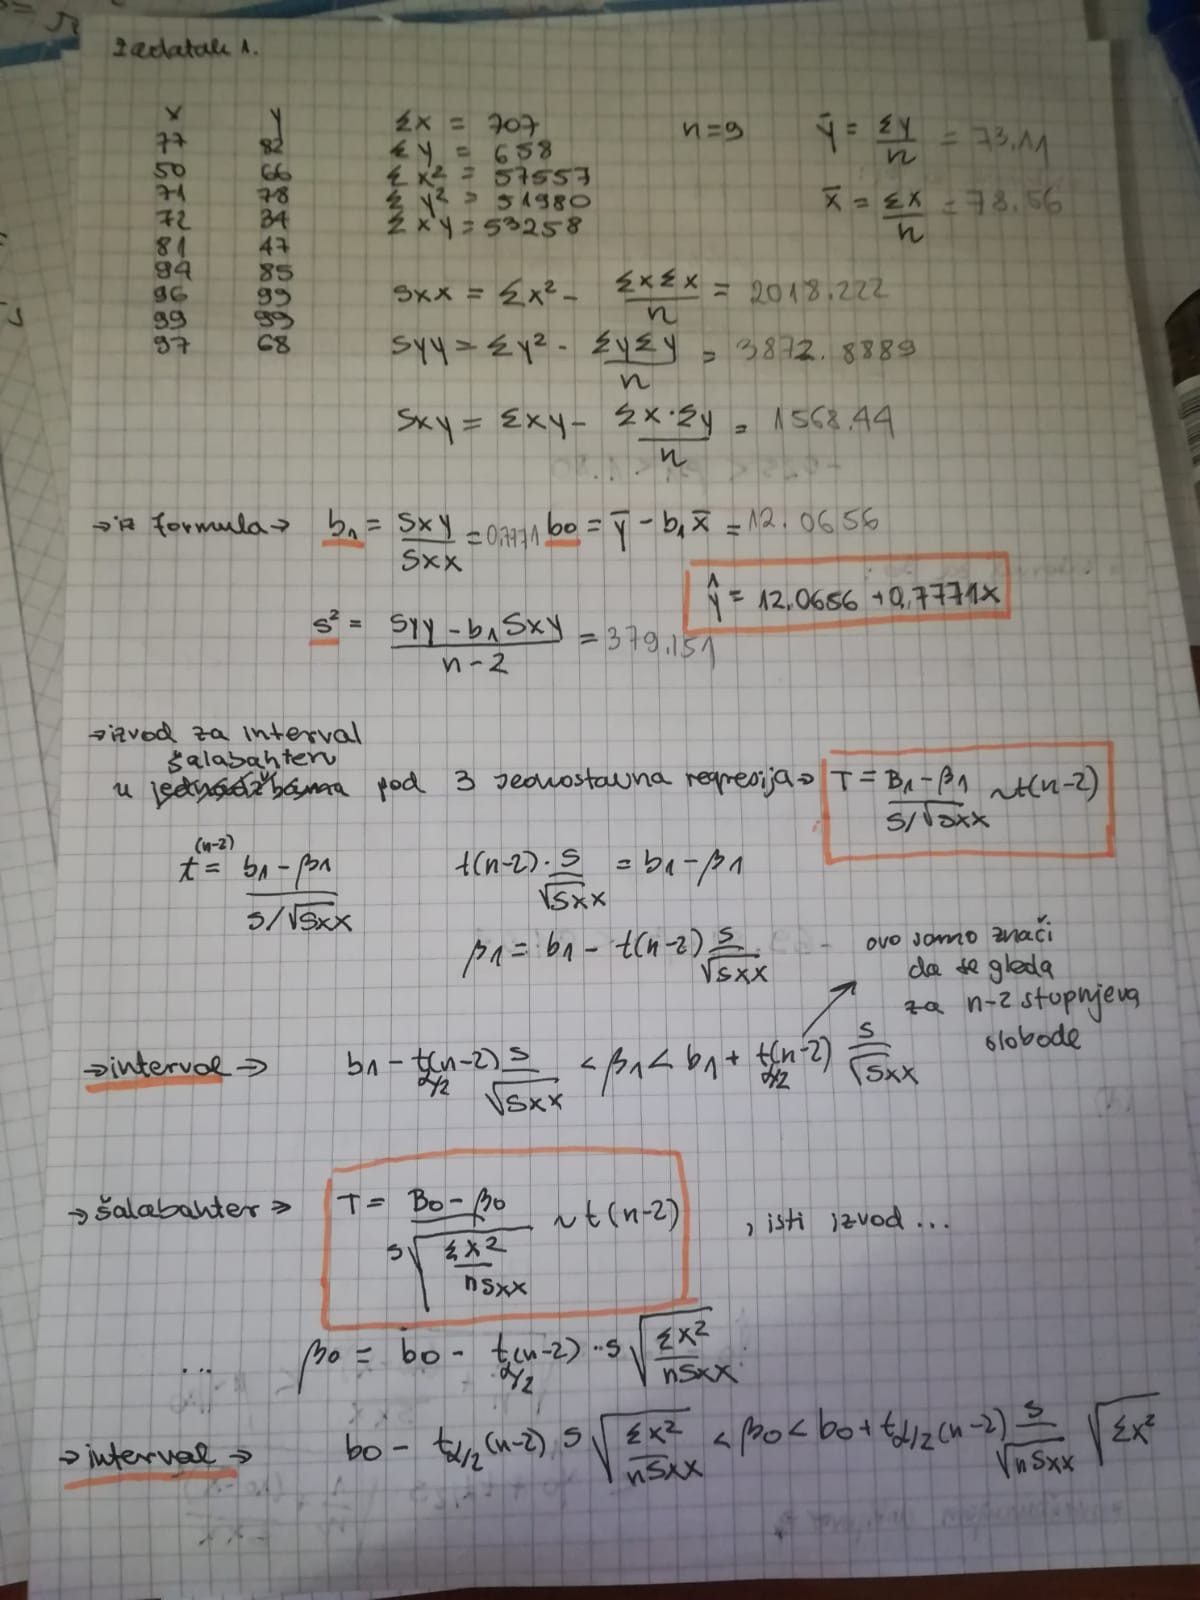 Zadatak 1.
x y
77 82
50 66
71 78
72 34
81 47
94 85
96 99
99 99
97 68
Σx = 707
Σy = 658
Σx² = 57557
Σy² = 51980
Σxy = 53258
n=9
ȳ = Σy/n = 73.11
x̄ = Σx/n = 78.56
Sxx = Σx² - ΣxΣx/n = 2018.222
Syy = Σy² - ΣyΣy/n = 3872.8889
Sxy = Σxy - Σx·Σy/n = 1568.44
→ iz formula → b₁ = Sxy/Sxx = 0,7771 b0 = ȳ - b₁x̄ = 12.0656
ŷ = 12,0656 + 0,7771x
s² = (Syy - b₁Sxy)/(n-2) = 379.151
→ izvod za interval
šalabahter
u pod 3 jednostavna regresija → T = (B₁ - β₁)/(S/√Sxx) ~ t(n-2)
t(n-2) = (b₁ - β₁)/(s/√Sxx) t(n-2) · s/√Sxx = b₁ - β₁
β₁ = b₁ - t(n-2) s/√Sxx
ovo samo znači
da se gleda
za n-2 stupnjeva
slobode
→ interval → b₁ - t(n-2) α/2 s/√Sxx < β₁ < b₁ + t(n-2) α/2 s/√Sxx
→ šalabahter → T = (B0 - β0)/(s√(Σx²/nSxx)) ~ t(n-2) , isti izvod ...
... β0 = b0 - t(n-2) α/2 · s√(Σx²/nSxx)
→ interval → b0 - tα/2 (n-2) s√(Σx²/nSxx) < β0 < b0 + tα/2 (n-2) s/√nSxx √Σx²